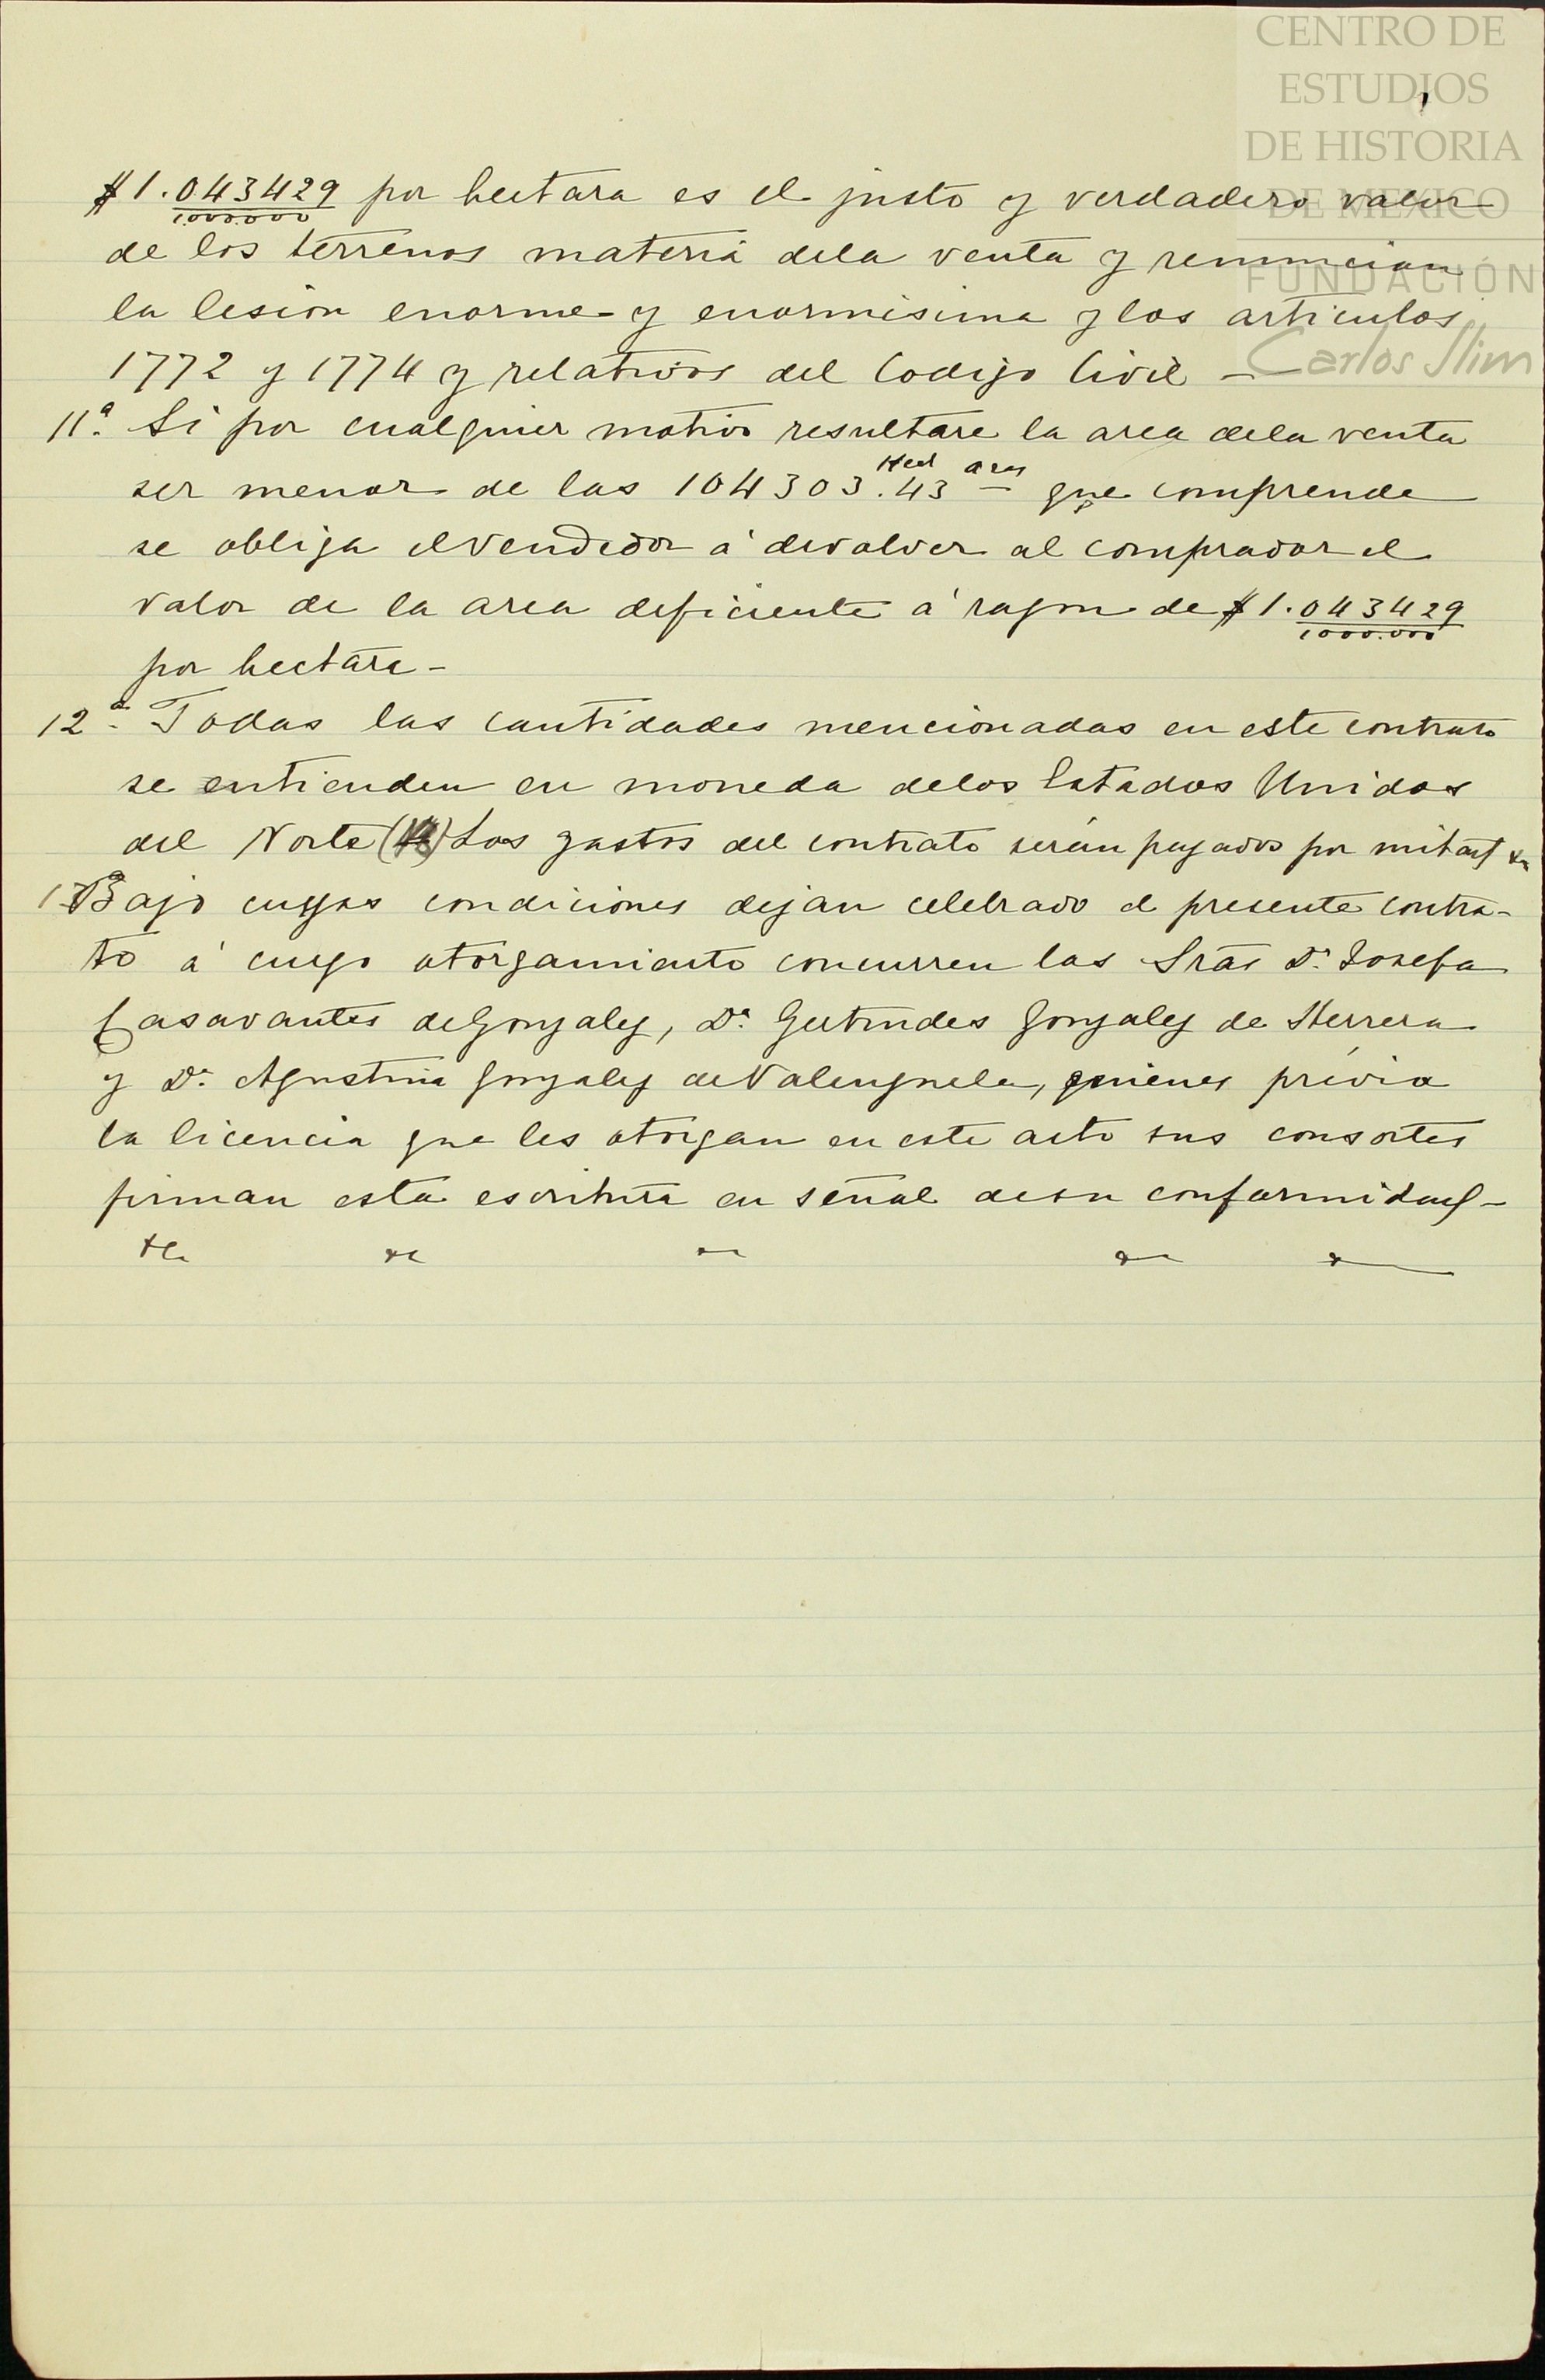 CENTRO DE
ESTUDIOS
DE HISTORIA
DE MÉXICO
FUNDACIÓN
Carlos Slim
$1.043429/1.000.000 por hectara es el justo y verdadero valor
de los terrenos materia dela venta y renuncian
la lesion enorme y enormisima y los articulos
1772 y 1774 y relativos del Codigo Civil —
11ª. Si por cualquier motivo resultare la area dela venta
ser menor de las 104303.Hect 43 aras que comprende
se obliga elvendedor á devolver al comprador el
valor de la area deficiente á razon de $1.043429/1000.000
por hectara —
12ª. Todas las cantidades mencionadas en este contrato
se entienden en moneda delos Estados Unidos
del Norte ( ) Los gastos del contrato serán pagados por mitad &a
Bajo cuyas condiciones dejan celebrado el presente contra-
to á cuyo otorgamiento concurren las Sras Dª. Josefa
Casavantes deGonzalez, Dª. Gertrudes Gonzalez de Herrera
y Dª. Agustina Gonzalez deValenzuela, quienes prévia
la licencia que les otorgan en este acto sus consortes
firman esta escritura en señal desu conformidad —
&a &a